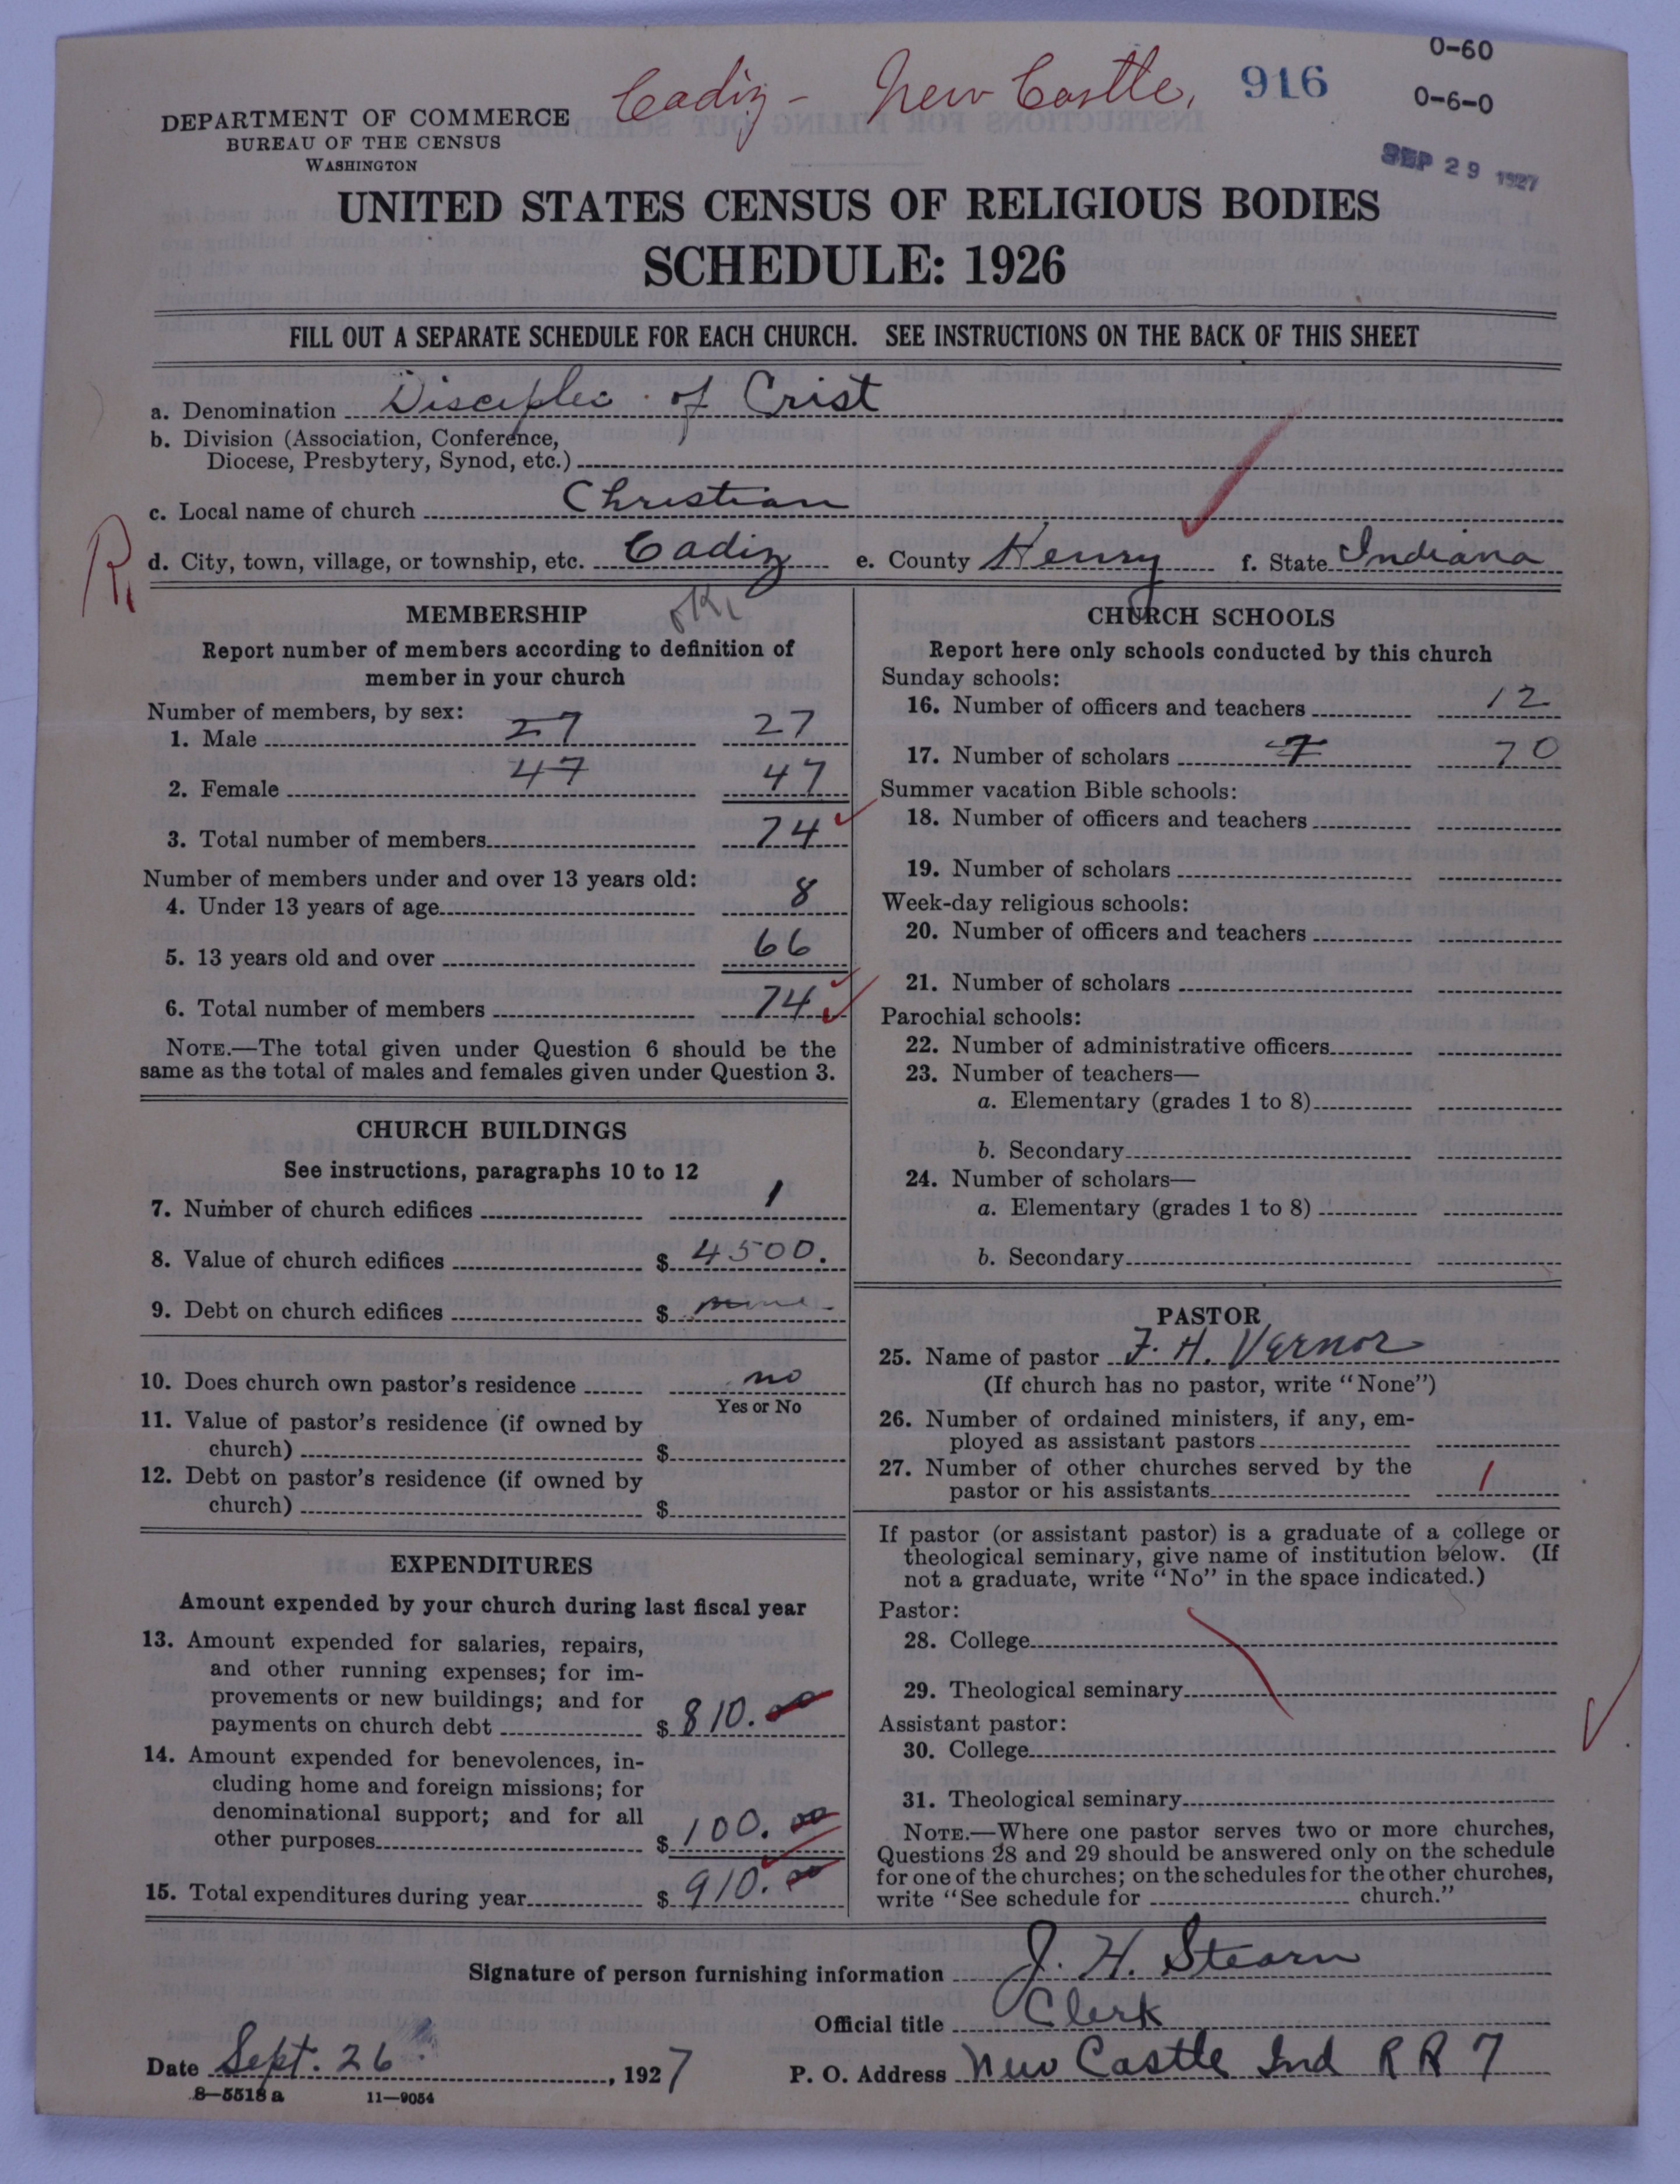 Cadiz - New Castle, 916
0-60
0-6-0
SEP 29 1927
DEPARTMENT OF COMMERCE
BUREAU OF THE CENSUS
WASHINGTON
UNITED STATES CENSUS OF RELIGIOUS BODIES
SCHEDULE: 1926
FILL OUT A SEPARATE SCHEDULE FOR EACH CHURCH. SEE INSTRUCTIONS ON THE BACK OF THIS SHEET
a. Denomination Disciples of Crist
b. Division (Association, Conference,
Diocese, Presbytery, Synod, etc.)
c. Local name of church Christian
R. d. City, town, village, or township, etc. Cadiz e. County Henry f. State Indiana
MEMBERSHIP
Report number of members according to definition of
member in your church
Number of members, by sex:
1. Male 27 27
2. Female 47 47
3. Total number of members 74
Number of members under and over 13 years old:
4. Under 13 years of age 8
5. 13 years old and over 66
6. Total number of members 74
NOTE.—The total given under Question 6 should be the
same as the total of males and females given under Question 3.
CHURCH BUILDINGS
See instructions, paragraphs 10 to 12
7. Number of church edifices 1
8. Value of church edifices $ 4500.
9. Debt on church edifices $
10. Does church own pastor's residence no
Yes or No
11. Value of pastor's residence (if owned by
church) $
12. Debt on pastor's residence (if owned by
church) $
EXPENDITURES
Amount expended by your church during last fiscal year
13. Amount expended for salaries, repairs,
and other running expenses; for im-
provements or new buildings; and for
payments on church debt $ 810.00
14. Amount expended for benevolences, in-
cluding home and foreign missions; for
denominational support; and for all
other purposes $ 100.00
15. Total expenditures during year $ 910.00
CHURCH SCHOOLS
Report here only schools conducted by this church
Sunday schools:
16. Number of officers and teachers 12
17. Number of scholars 7 70
Summer vacation Bible schools:
18. Number of officers and teachers
19. Number of scholars
Week-day religious schools:
20. Number of officers and teachers
21. Number of scholars
Parochial schools:
22. Number of administrative officers
23. Number of teachers—
a. Elementary (grades 1 to 8)
b. Secondary
24. Number of scholars—
a. Elementary (grades 1 to 8)
b. Secondary
PASTOR
25. Name of pastor F. H. Vernor
(If church has no pastor, write "None")
26. Number of ordained ministers, if any, em-
ployed as assistant pastors
27. Number of other churches served by the
pastor or his assistants 1
If pastor (or assistant pastor) is a graduate of a college or
theological seminary, give name of institution below. (If
not a graduate, write "No" in the space indicated.)
Pastor:
28. College
29. Theological seminary
Assistant pastor:
30. College
31. Theological seminary
NOTE.—Where one pastor serves two or more churches,
Questions 28 and 29 should be answered only on the schedule
for one of the churches; on the schedules for the other churches,
write "See schedule for church."
Signature of person furnishing information J. H. Stearn
Official title Clerk
Date Sept. 26, 1927 P. O. Address New Castle Ind R R 7
8-5518 a 11-9054